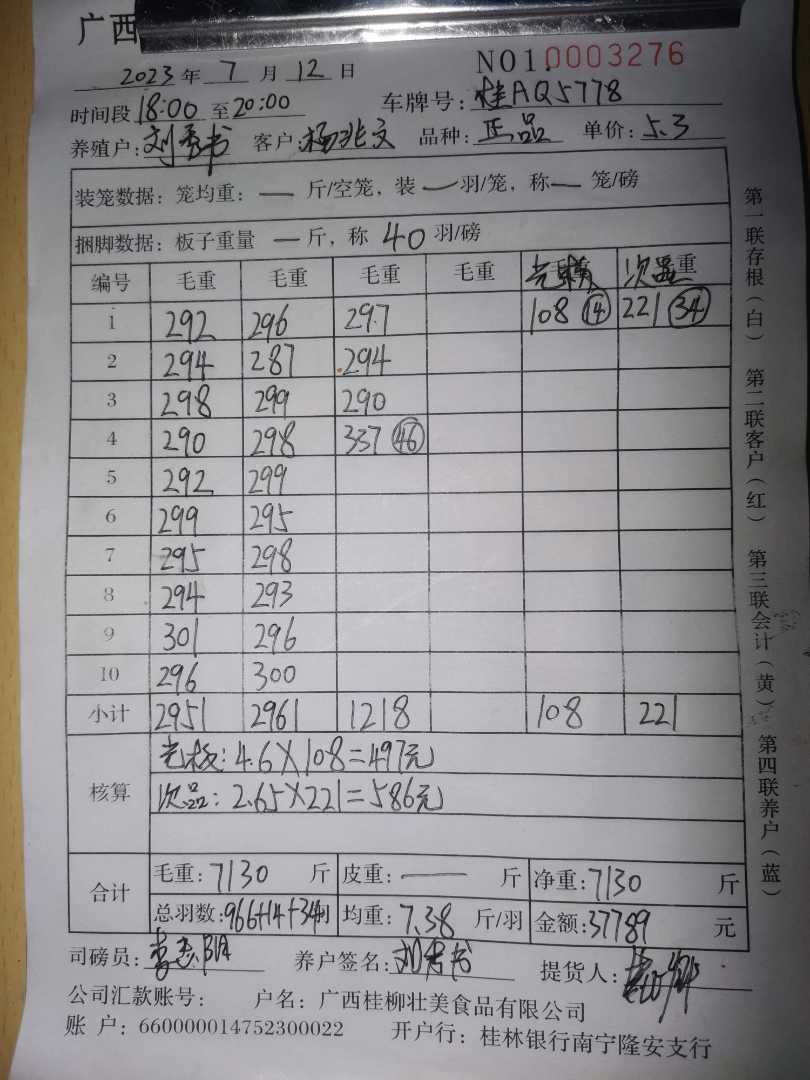 广西
NO1.0003276
2023年7月12日
时间段18:00至20:00 车牌号:桂AQ5778
养殖户: 客户:杨兆文 品种:正品 单价:5.3
装笼数据:笼均重:—斤/空笼,装—羽/笼,称—笼/磅
捆脚数据:板子重量—斤,称40羽/磅
编号 毛重 毛重 毛重 毛重 次品重
1 292 296 297 108 ⑭ 221 ㉞
2 294 287 294
3 298 299 290
4 290 298 337 ㊻
5 292 299
6 299 295
7 295 298
8 294 293
9 301 296
10 296 300
小计 2951 2961 1218 108 221
核算
毛板:4.6×108=497元
次品:2.65×221=586元
合计
毛重:7130斤 皮重:—斤 净重:7130斤
总羽数:966+14+34 均重:7.38斤/羽 金额:37789元
司磅员: 养户签名: 提货人:
公司汇款账号: 户名:广西桂柳壮美食品有限公司
账户:660000014752300022 开户行:桂林银行南宁隆安支行
第一联存根(白) 第二联客户(红) 第三联会计(黄) 第四联养户(蓝)